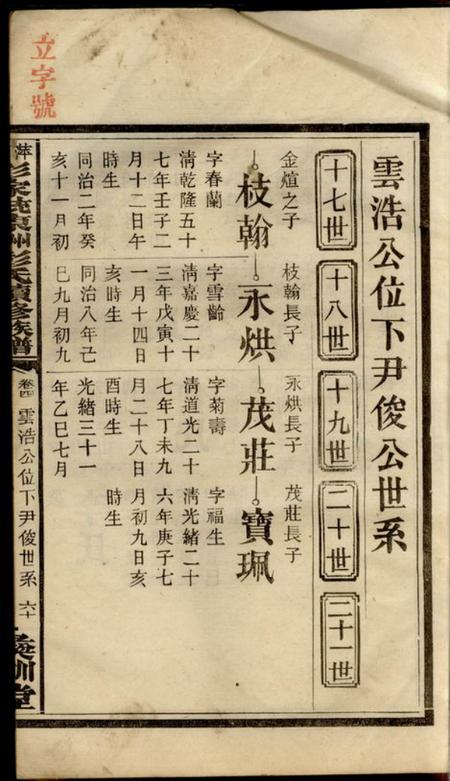 立字號
雲浩公位下尹俊公世系
十七世
十八世
十九世
二十世
二十一世
金煊之子
枝翰
字春蘭
清乾隆五十
七年壬子二
月十二日午
時生
同治二年癸
亥十一月初
枝翰長子
永烘
字雪齡
清嘉慶二十
三年戊寅十
一月十四日
亥時生
同治八年己
巳九月初九
永烘長子
茂莊
字菊壽
清道光二十
七年丁未九
月二十八日
酉時生
光緒三十一
年乙巳七月
茂莊長子
寶珮
字福生
清光緒二十
六年庚子七
月初九日亥
時生
彭氏續修族譜
卷四
雲浩公位下尹俊世系
六十
訓堂